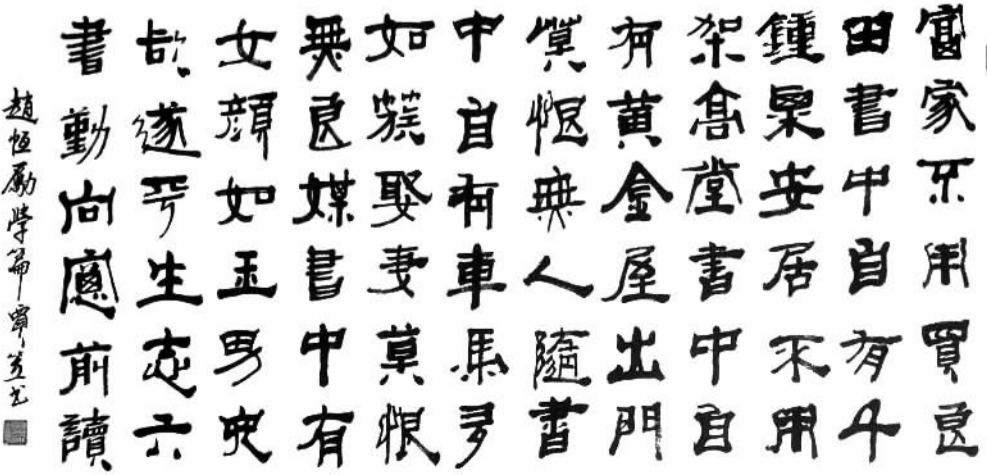 富家不用買良
田書中自有千
鍾粟安居不用
架高堂書中自
有黃金屋出門
莫恨無人隨書
中自有車馬多
如簇娶妻莫恨
無良媒書中有
女顏如玉男兒
欲遂平生志六
書勤向窗前讀
趙恒勵學篇